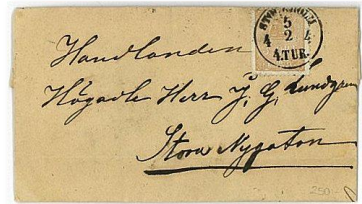 STOCKHOLM
5
4 2 4
4.TUR.
Handlanden
Högädle Herr J. G. Lundgren
Stora Nygatan
250